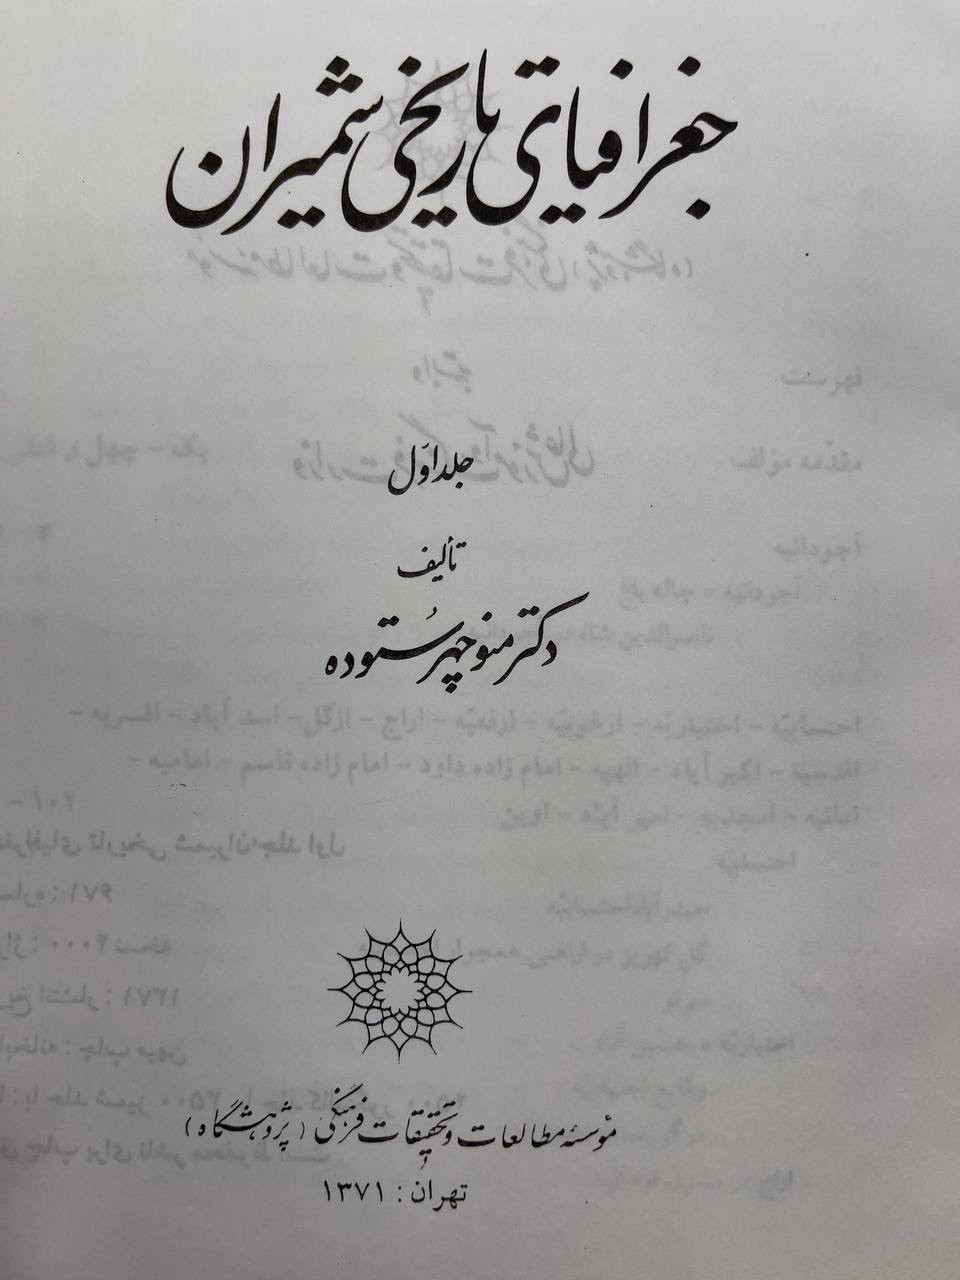 جغرافیای تاریخی شمیران
جلد اوّل
تألیف
دکتر منوچهر ستُوده
مؤسسهٔ مطالعات و تحقیقات فرهنگی (پژوهشگاه)
تهران: ۱۳۷۱